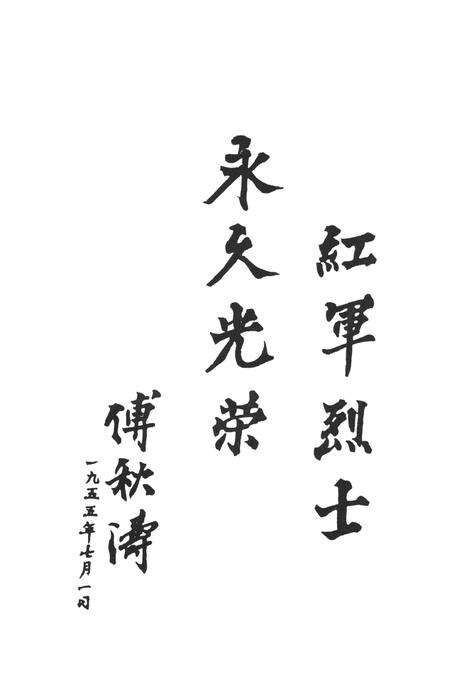 紅軍烈士
永久光荣
傅秋濤
一九五五年七月一日